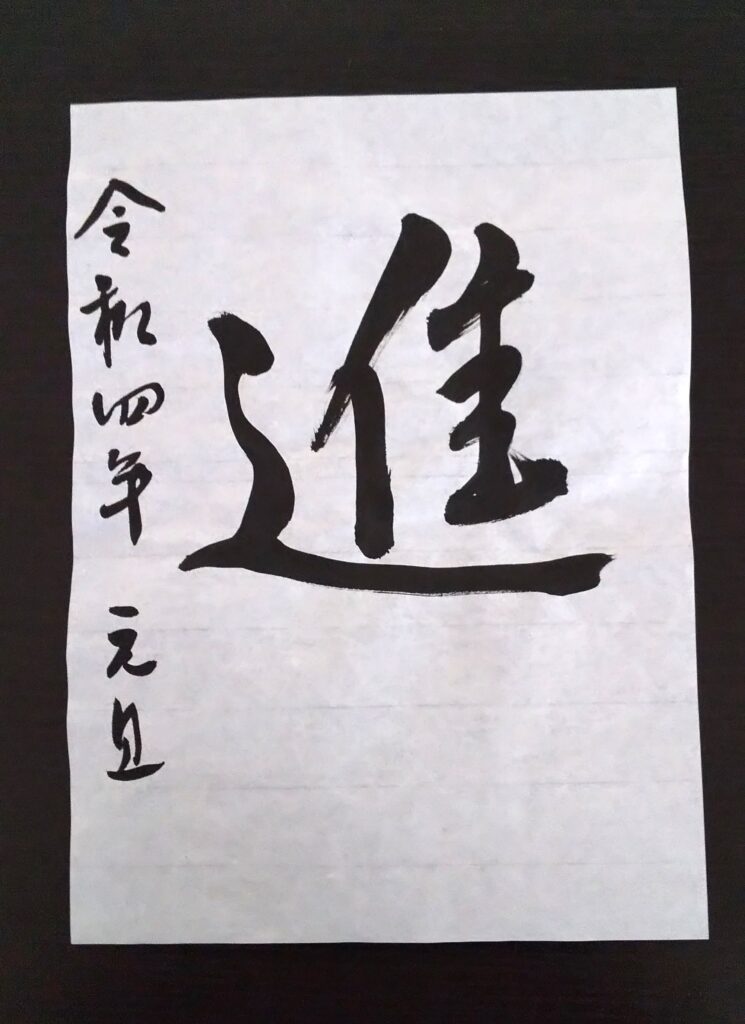 進
令和四年 元旦